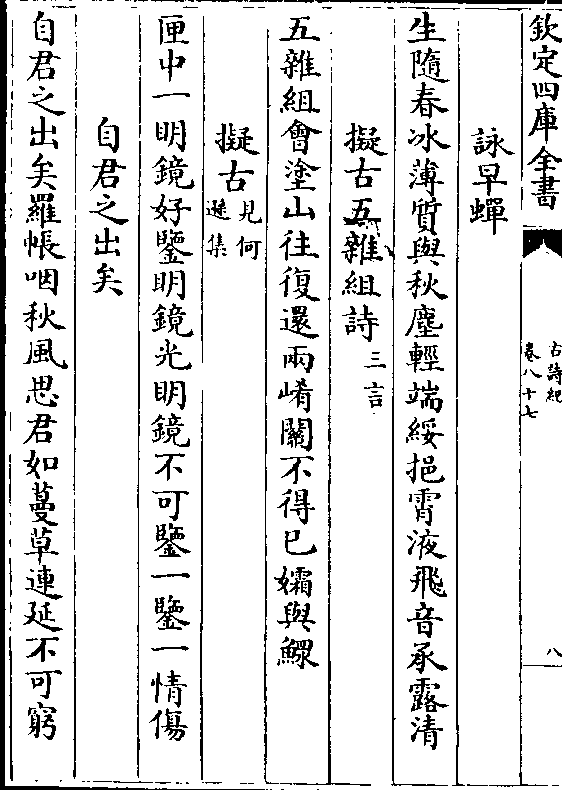 欽定四庫全書
古詩紀
卷八十七
八
詠早蟬
生隨春冰薄質與秋塵輕端綏挹霄液飛音承露清
擬古五雜組詩三言
五雜組會塗山往復還兩崤關不得已孀與鰥
擬古見何遜集
匣中一明鏡好鑒明鏡光明鏡不可鑒一鑒一情傷
自君之出矣
自君之出矣羅帳咽秋風思君如蔓草連延不可窮